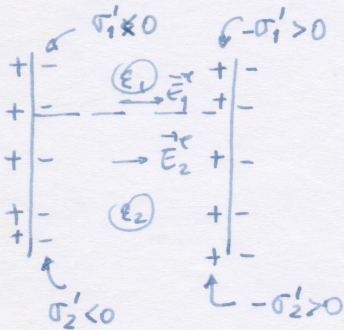 σ₁' < 0
-σ₁' > 0
+ - ε₁ + -
+ - E⃗₁ʳ + -
+ - E⃗₂ʳ + -
+ - ε₂ + -
+ - + -
σ₂' < 0
-σ₂' > 0